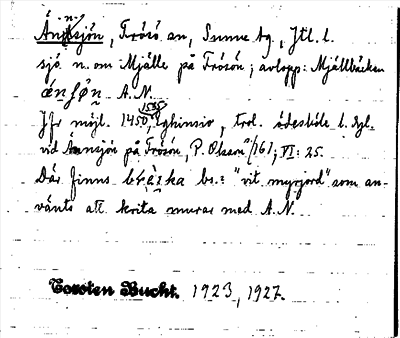 Ånnsjön, Frösö sn, Sunne tg, Jtl. l.
sjö n. om Mjälle på Frösön; avlopp: Mjällbäcken
A.N.
Jfr möjl. 1450, trol. ödesböle l. dyl.
vid Ånnsjön på Frösön, P. Olsson /161; VI: 25.
Där finns br.: "vit myrjord" som an-
vänts att krita murar med A.N.
Torsten Bucht. 1923, 1927.